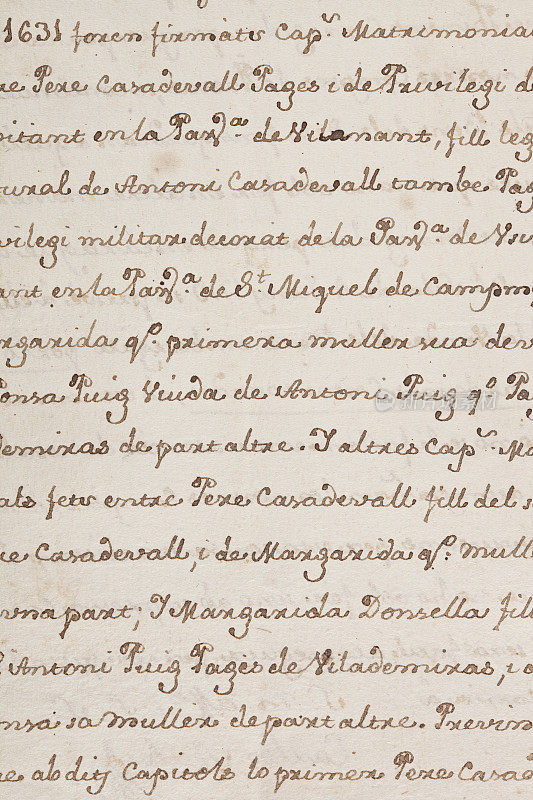 1631 foren firmats Cap.ˢ Matrimonia
re Pere Casadevall Pages i de Privilegi d
bitant en la Parª. de Vilanant, fill leg
tural de Antoni Casadevall tambe Pag
vilegi militar decorat de la Parª. de Vsi
ant en la Parª. de S.ᵗ Miquel de Campm
rgarida qº. primera muller sua de v
onsa Puig Viuda de Antoni Puig qº Pag
demiras de part altre. Y altres Cap.ˢ Ma
als fets entre Pere Casadevall fill del s
re Casadevall, i de Margarida qº. mull
vna part; Y Margarida Donsella fill
Antoni Puig Pages de Vilademiras, i
onsa sa muller de part altre. Previn
e ab dits Capitols lo primer Pere Casad